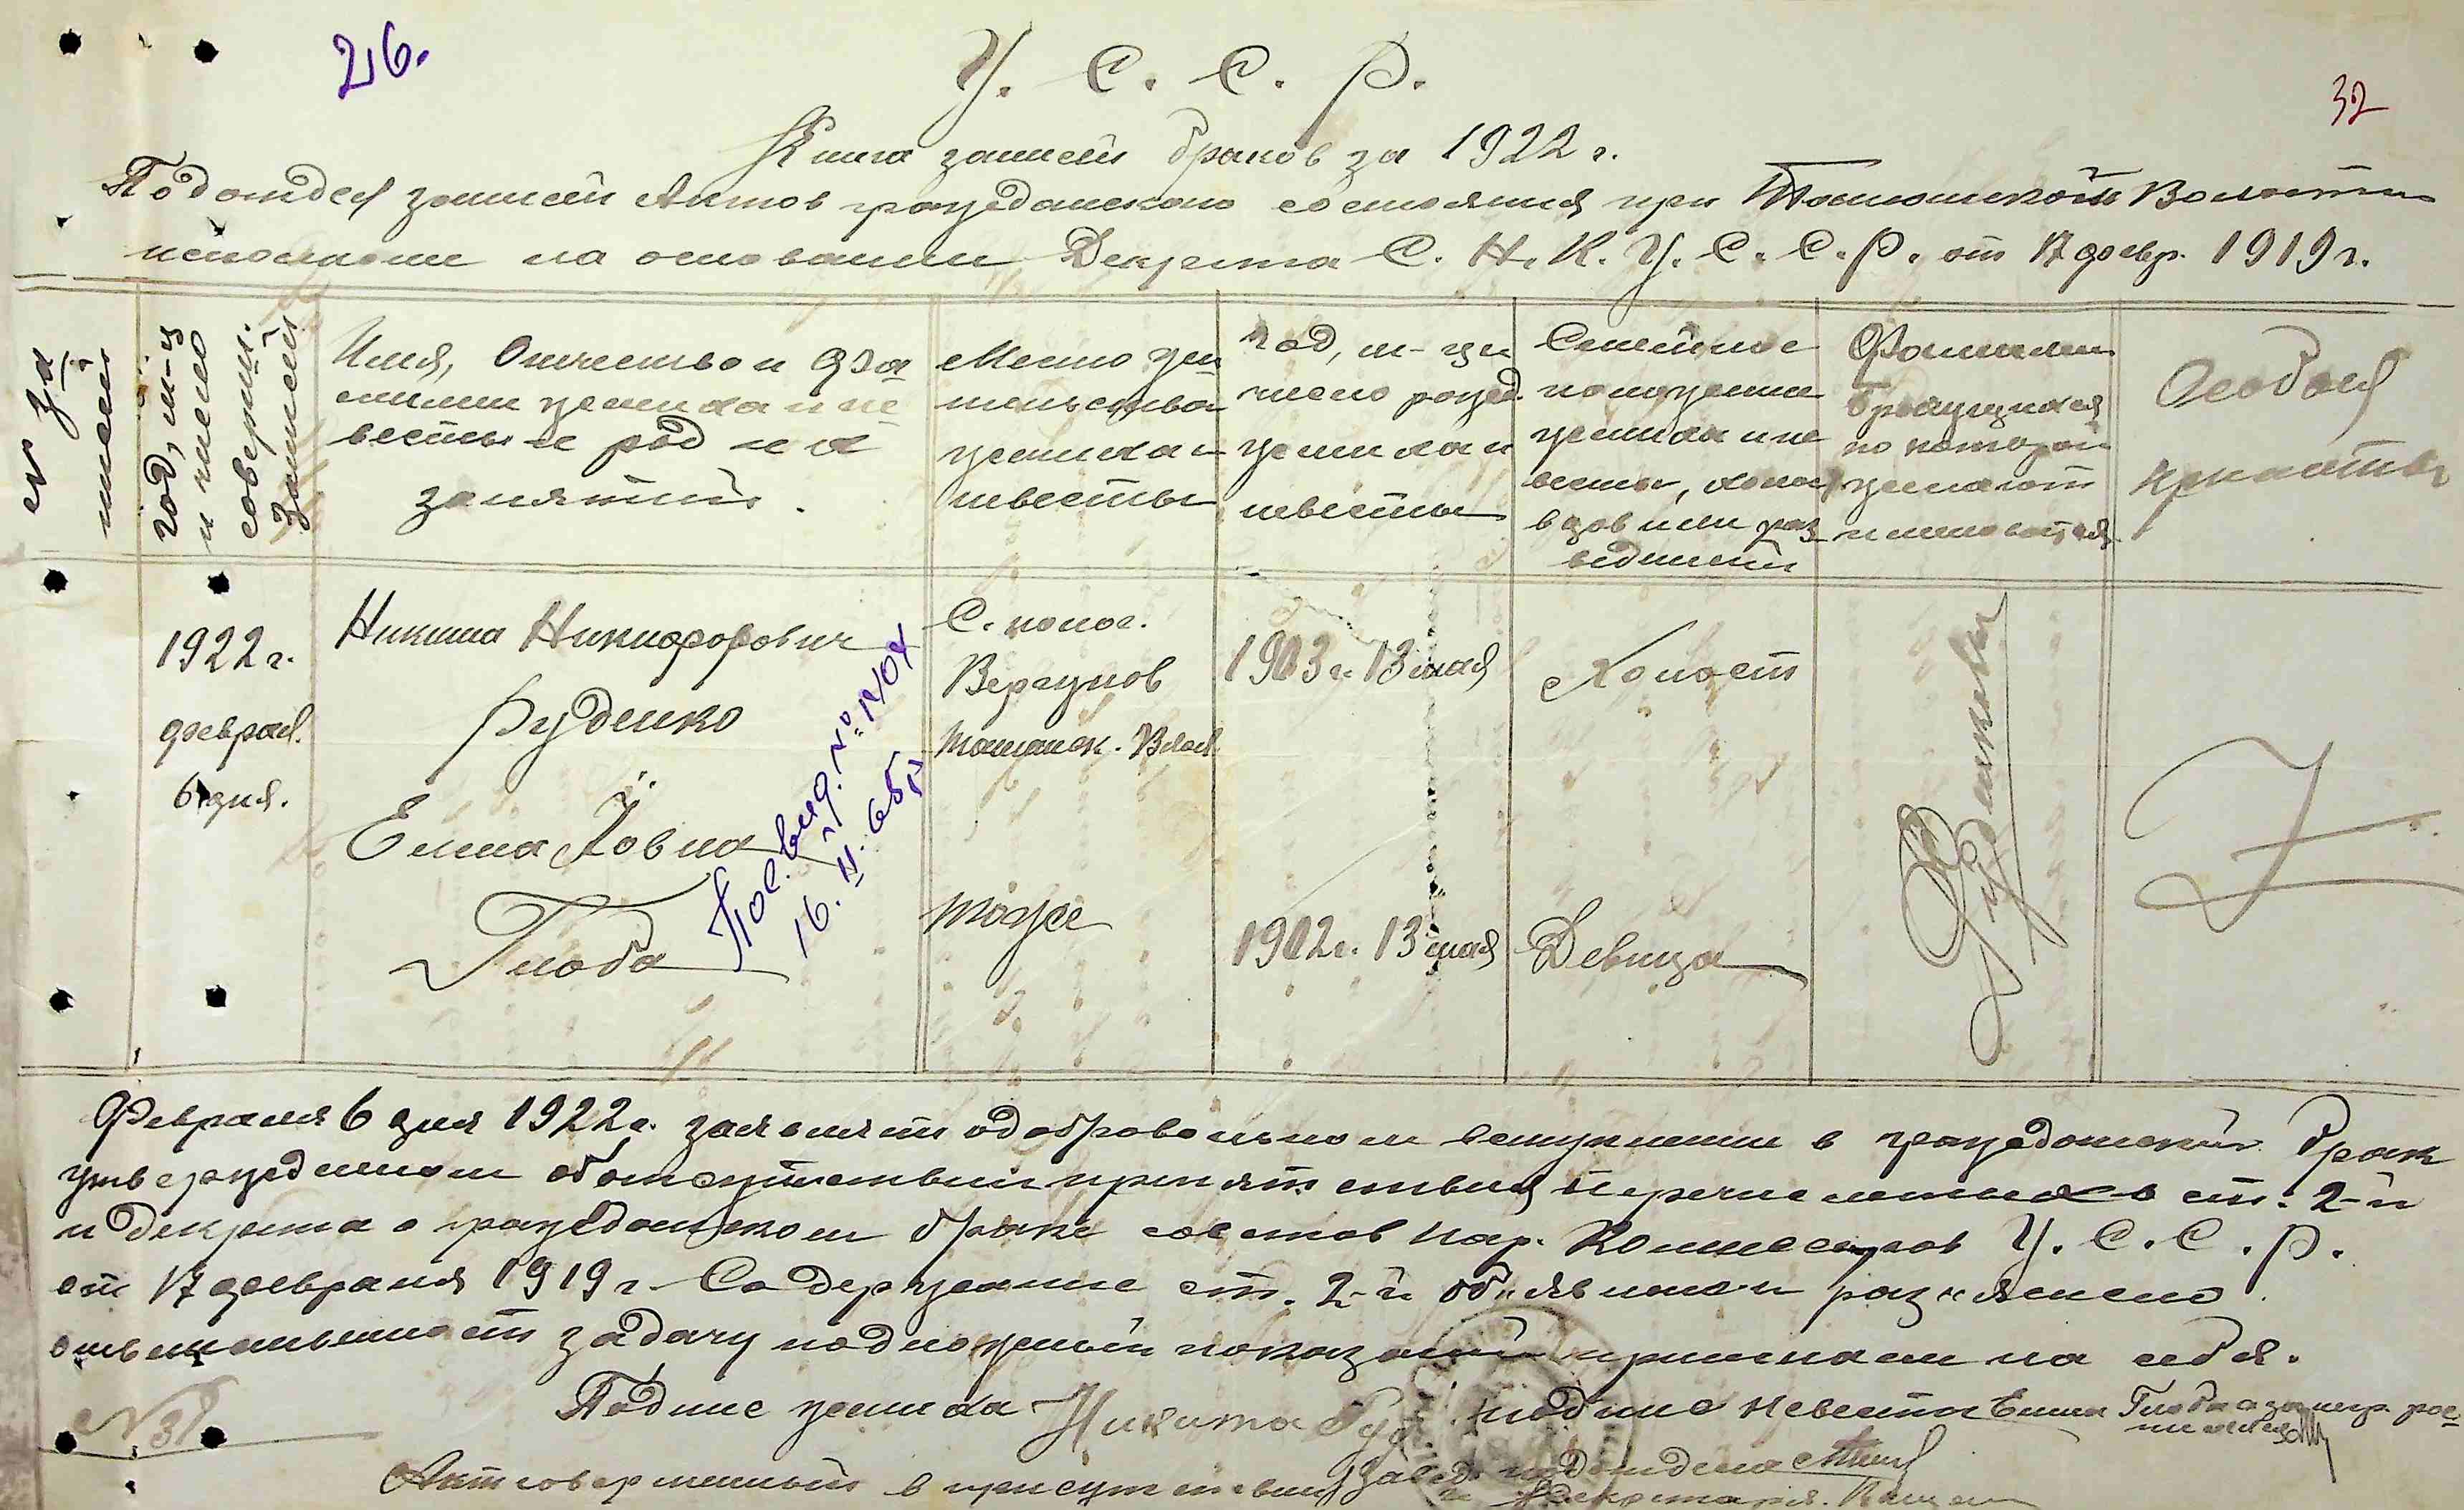 26.
32
У. С. С. Р.
Книга записей браков за 1922 г.
Подотдел записей Актов гражданского состояния при Волости
на основании Декрета С. Н. К. У. С. С. Р. от 17 февр. 1919 г.
№ за
писи
год, м-ц
и число
соверш.
записей
Имя, Отчество и фа
милии жениха и не
весты и род их
занятий.
Место жи
тельства
жениха и
невесты
Год, м-ц и
число рожд.
жениха и
невесты
Семейное
положение
жениха и не
весты, холос
вдов или раз
веденный
Фамилии
брачущихся
по которой
желают
именоваться
Особые
1922 г.
феврал.
6 дня.
Никита Никифорович
Руденко
Елена Іовна
Глоба
Посвид. № 1404
С.
Вергунов
Ташанск. Волос.
тоже
1903 г. 13 мая
1902 г. 13 мая
Холост
Девица
Руденкови
Февраля 6 дня 1922 г. заявляем о добровольном вступлении в гражданский брак
утвержденном об отсутствии препятствия перечисленных в ст. 2-й
и декрета о гражданском браке советов нар. Комиссаров У. С. С. Р.
от 17 февраля 1919 г. Содержание ст. 2-й объявлено и разъяснено.
ответственность за дачу ложных показаний принимаем на себя.
Подпис жениха Никита Руд. подпис невесты Елена Глоба а за негр. рос
Акт совершенный в присутствии завед. подотдела
Секретаря.